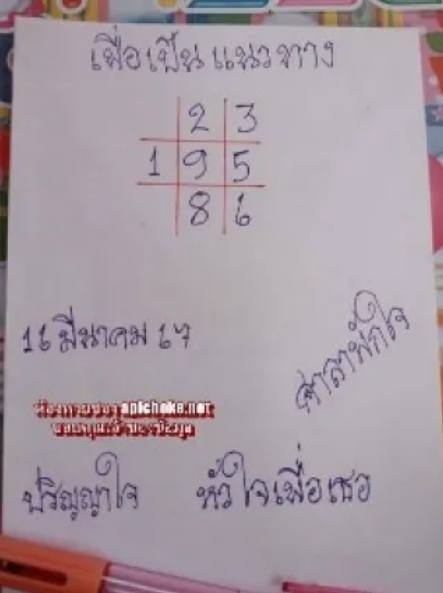 เพื่อเป็นแนวทาง
2 3
1 9 5
8 6
16 มีนาคม 67
ศาลาพักใจ
apichoke.net
ปริญญาใจ หัวใจเพื่อเธอ